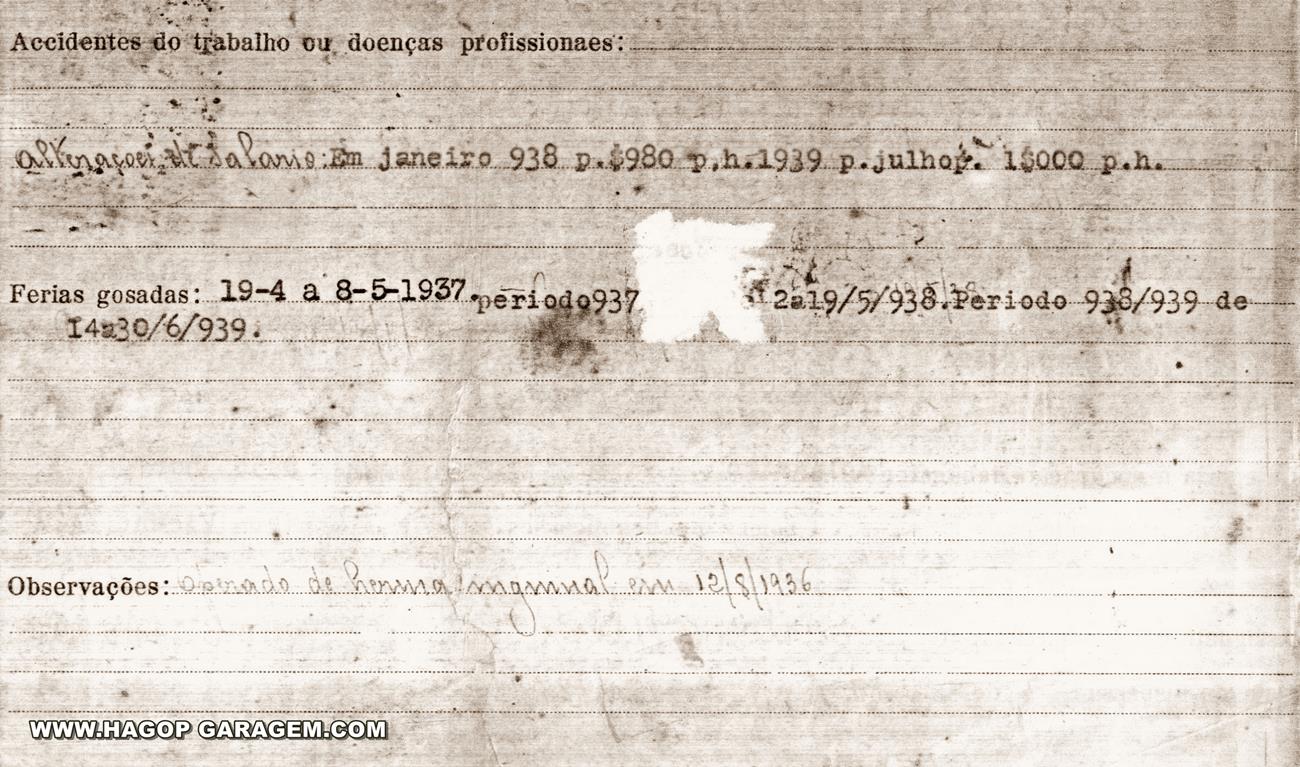 Accidentes do trabalho ou doenças profissionaes:
alterações de salario: Em janeiro 938 p.$980 p,h.1939 p.julho 1$000 p.h.
Ferias gosadas: 19-4 a 8-5-1937. periodo937 2a19/5/938.Periodo 938/939 de
14a30/6/939.
Observações: Operado de hernia inguinal em 12/8/1936
WWW.HAGOP GARAGEM.COM